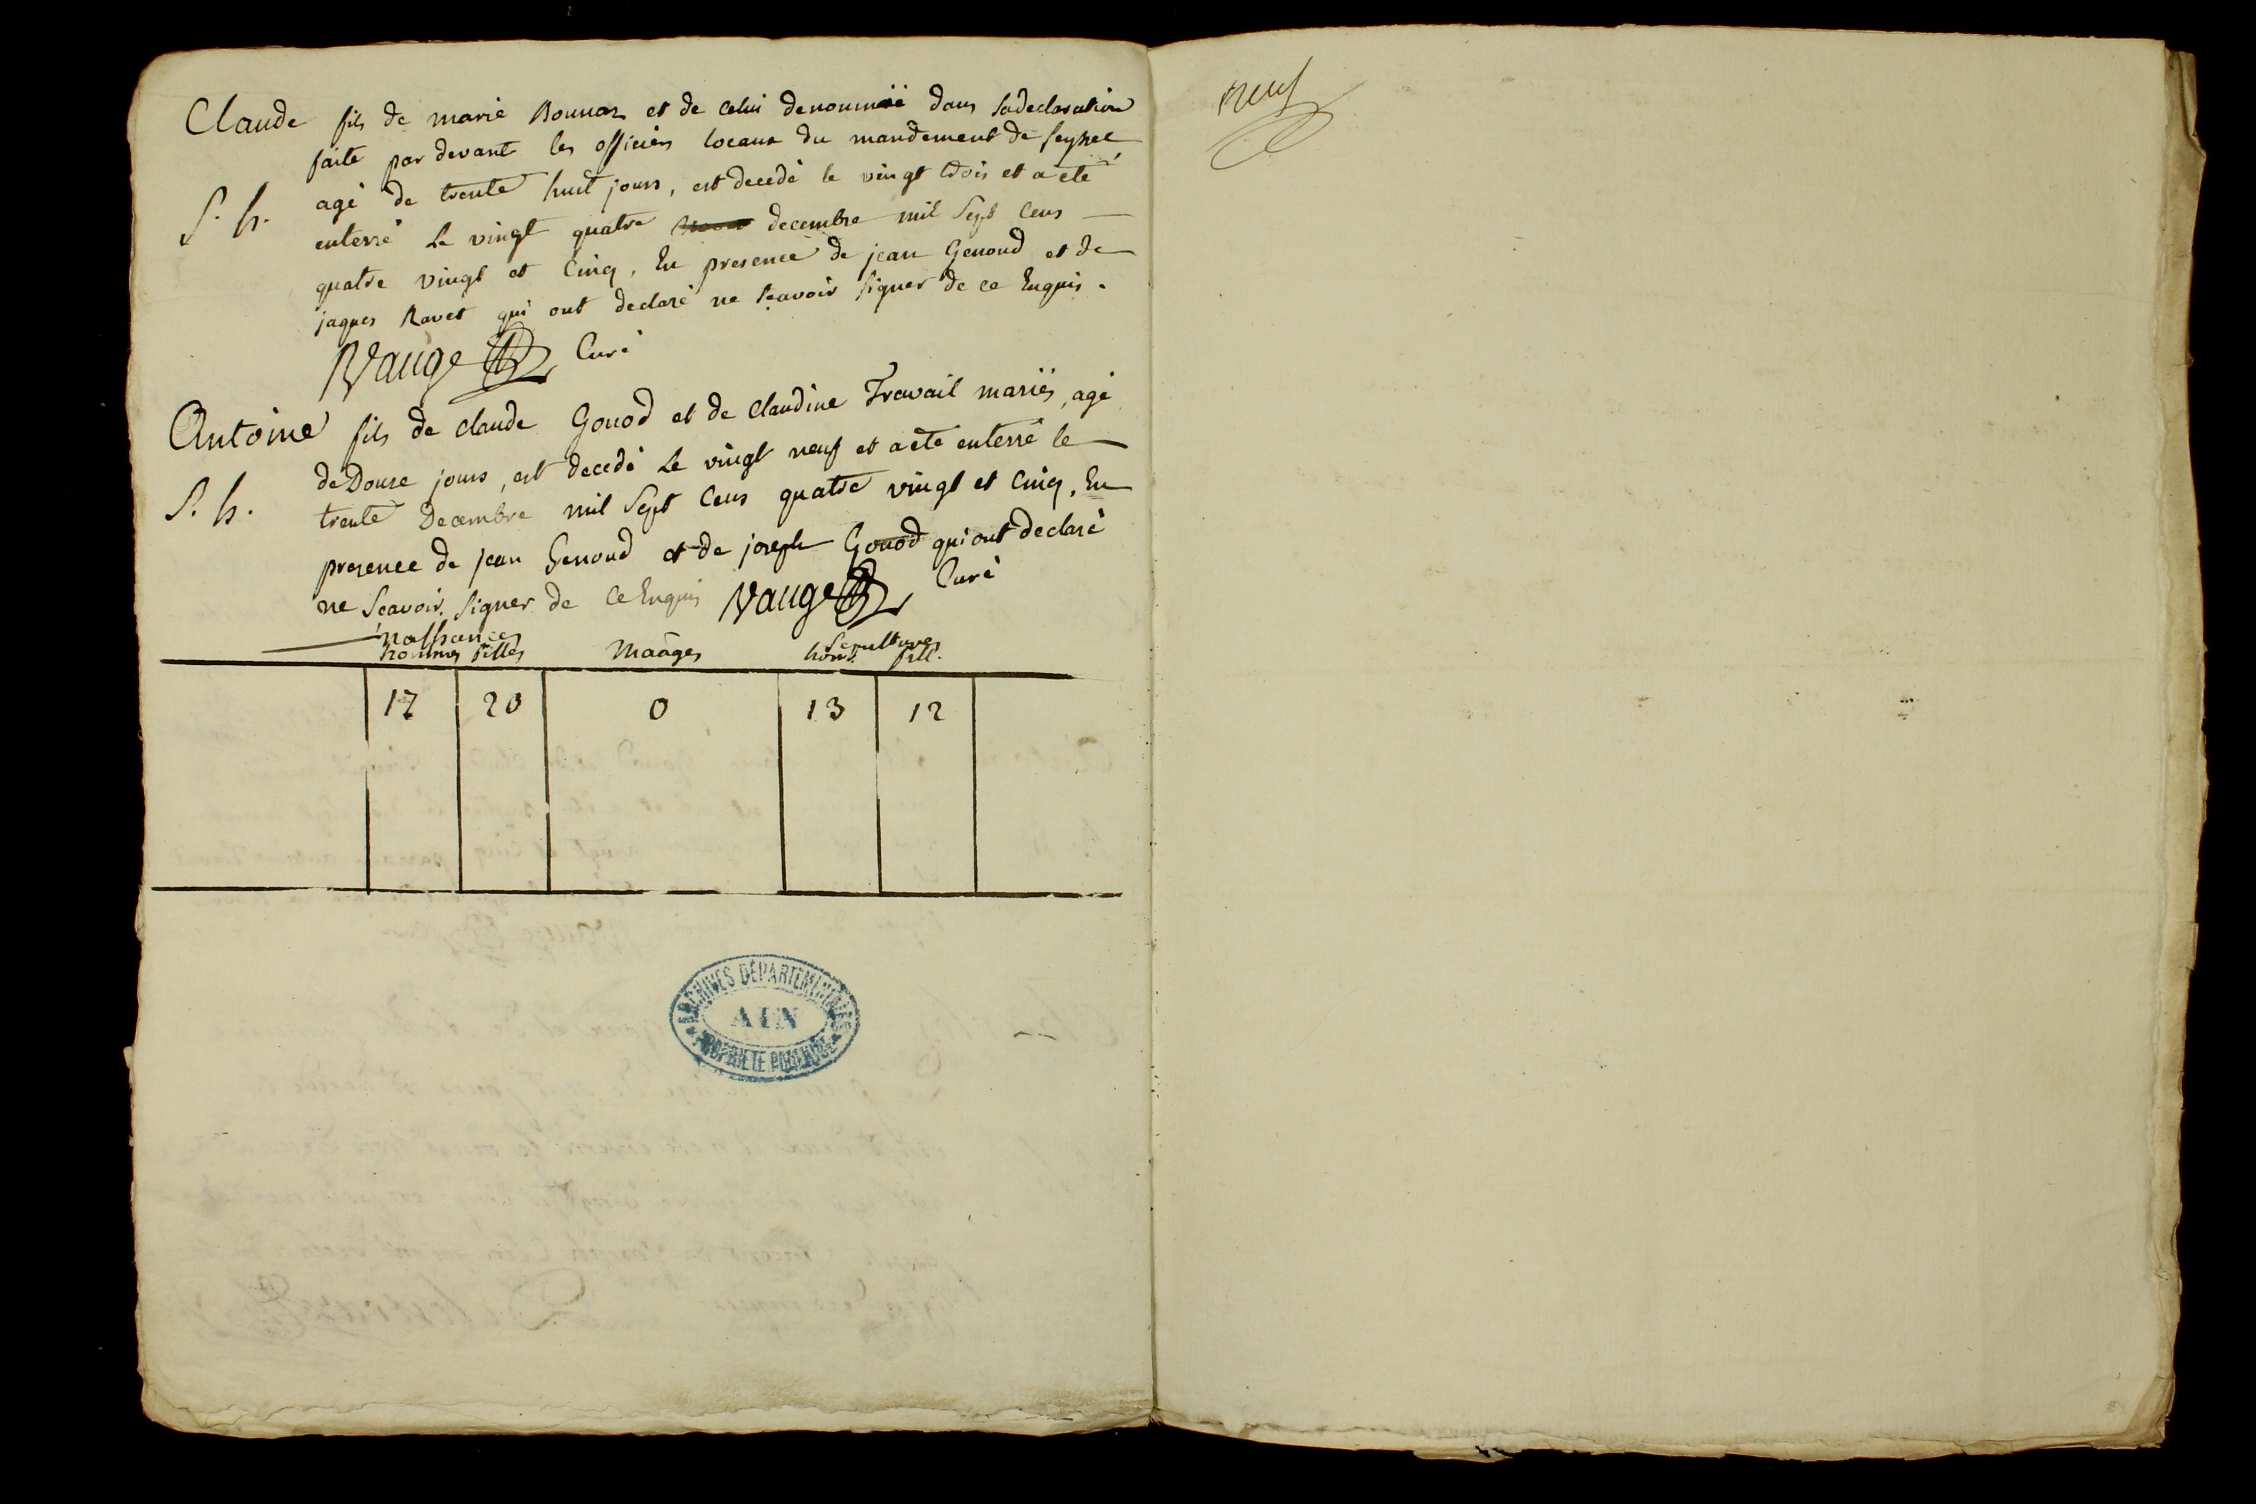 Claude fils de marie Bonnaz et de celui denommé dans sa declaration
faite par devant les officiers locaux du mandement de seyssel
agé de trente huit jours, est decedé le vingt trois et a eté
S. h.
enterré Le vingt quatre decembre mil Sept Cens
quatre vingt et Cinq, En presence de jean Genoud et de
jaques Ravet qui ont declaré ne Scavoir signer de ce Enquis.
Vauge Curé
Antoine fils de claude Gonod et de Claudine Travail mariés, agé
de Douze jours, est decedé Le vingt neuf et a eté enterré le
S. h.
trente Decembre mil Sept Cens quatre vingt et Cinq, En
presence de jean Genoud et de joseph Gonod qui ont declaré
ne Scavoir Signer de Ce Enquis Vauge Curé
naissances Sepultures
hommes filles Maāges hom. fill.
17 20 0 13 12
ARCHIVES DÉPARTEMENTALES
AIN
PROPRIÉTÉ PUBLIQUE
neuf